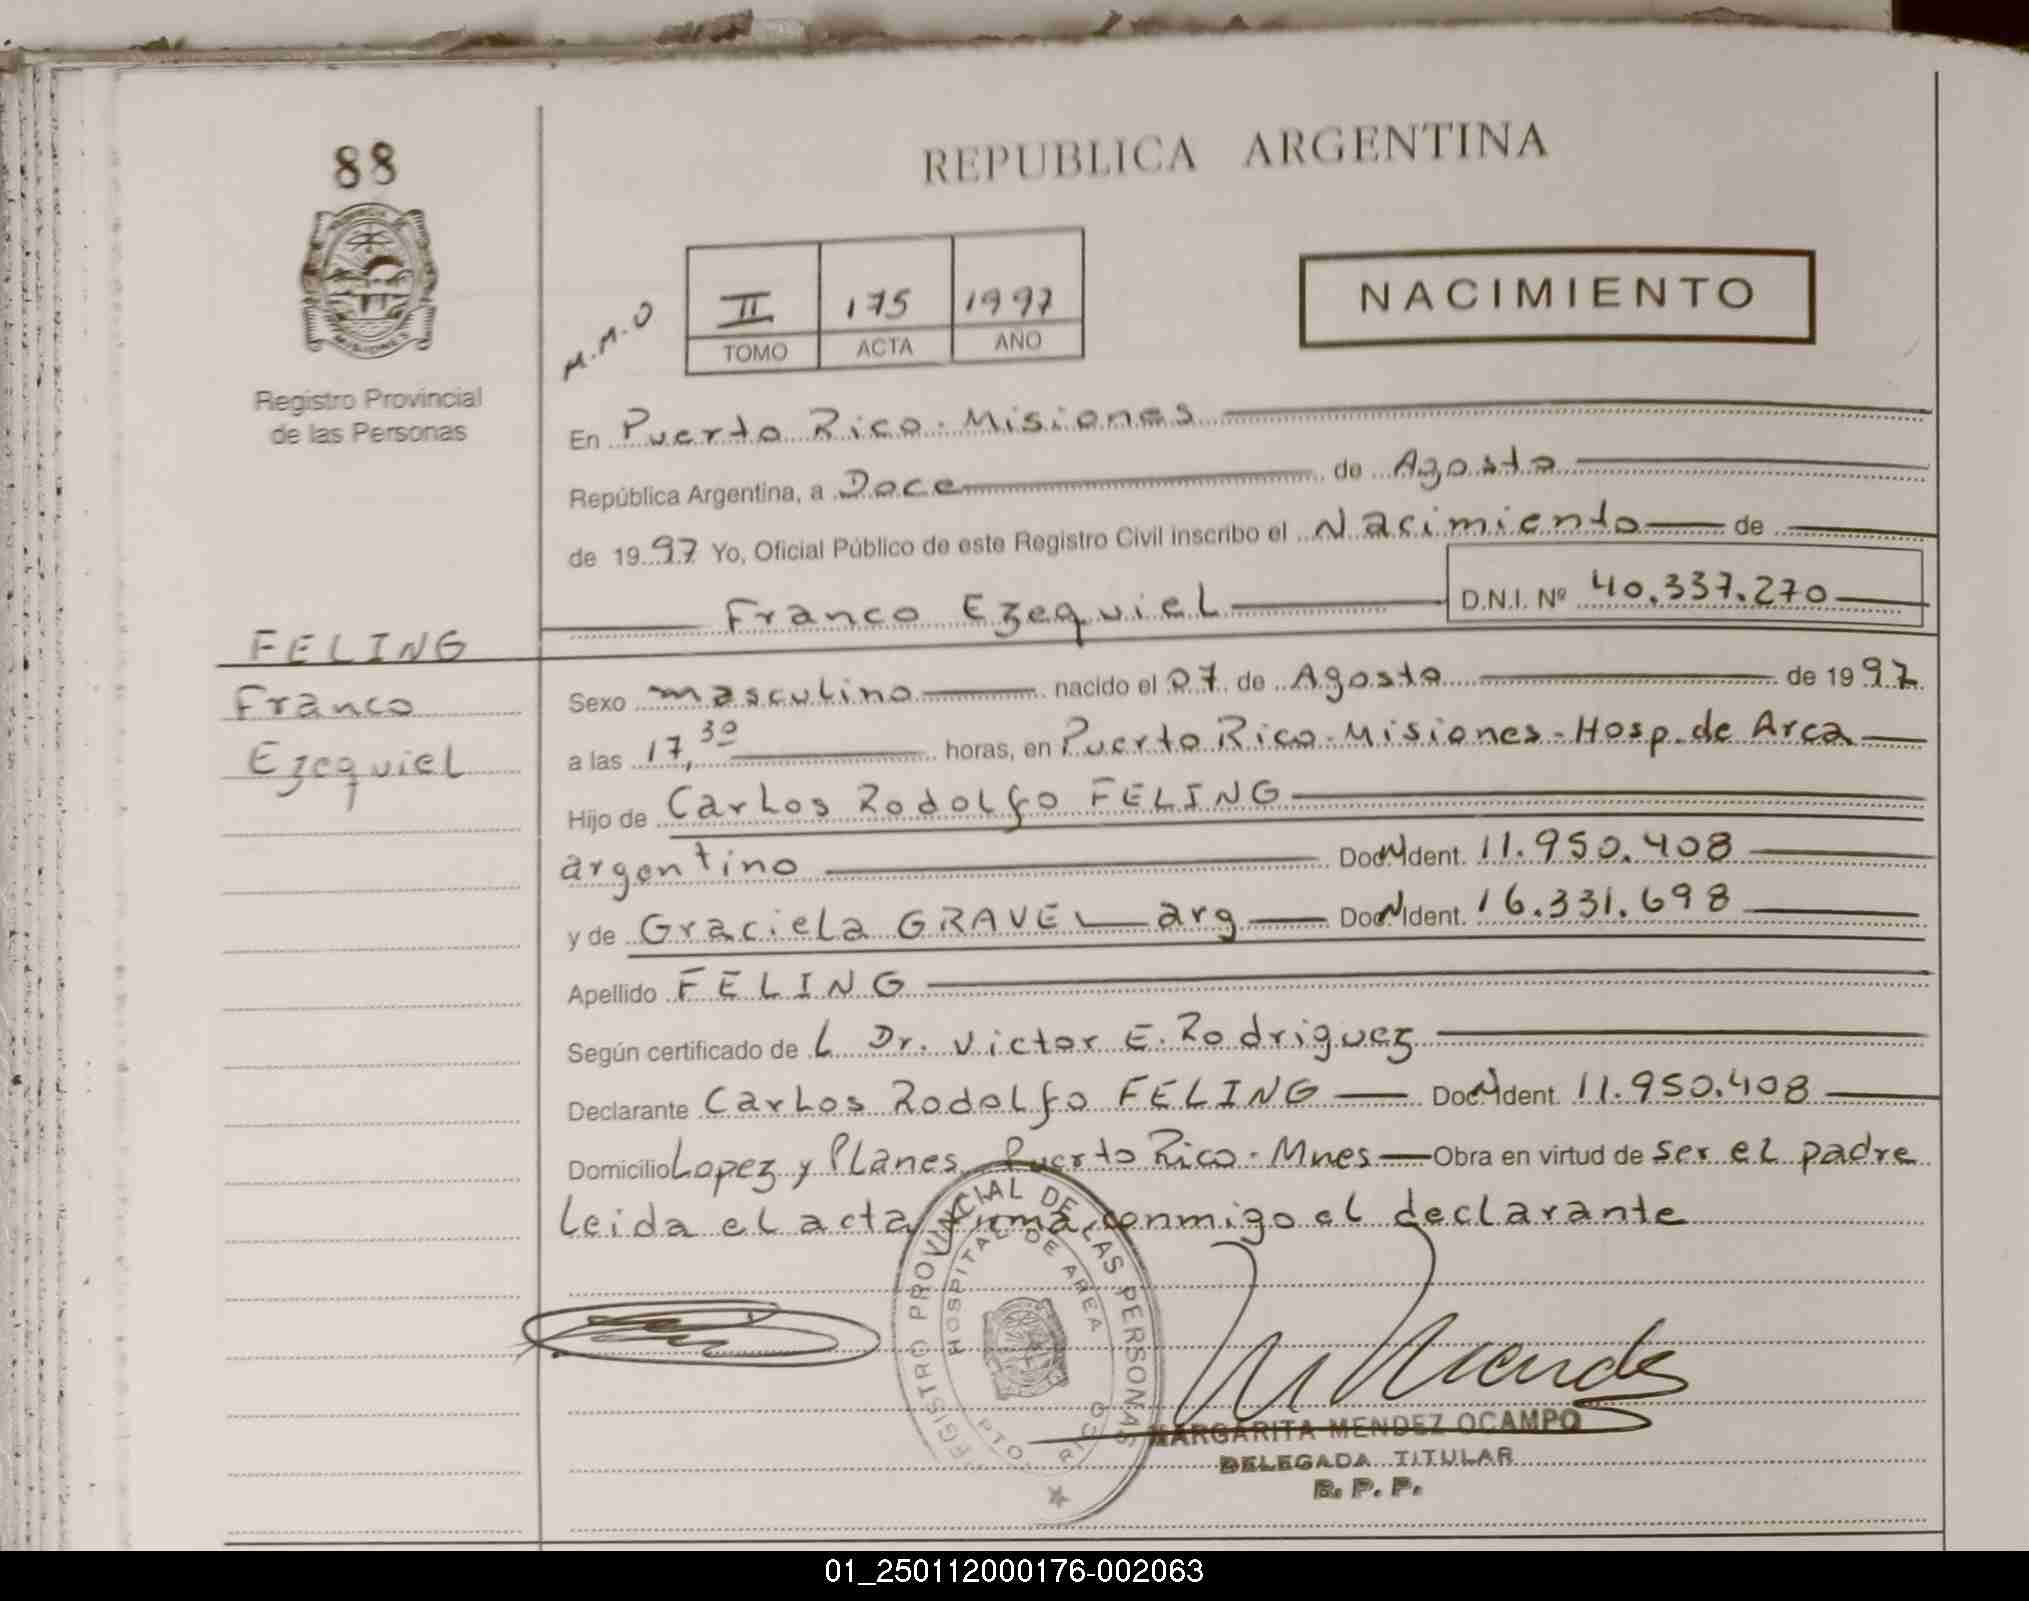 88
REPUBLICA ARGENTINA
MISIONES
Registro Provincial
de las Personas
M.M.O
II 175 1997
TOMO ACTA AÑO
NACIMIENTO
En Puerto Rico - Misiones
República Argentina, a Doce de Agosto
de 1997 Yo, Oficial Público de este Registro Civil inscribo el Nacimiento de
Franco Ezequiel D.N.I. Nº 40.337.270
FELING
Franco
Ezequiel
Sexo masculino nacido el 07 de Agosto de 1997
a las 17,30 horas, en Puerto Rico - Misiones - Hosp. de Area
Hijo de Carlos Rodolfo FELING
argentino Doc N Ident. 11.950.408
y de Graciela GRAVEL arg Doc N Ident. 16.331.698
Apellido FELING
Según certificado de l Dr. Victor E. Rodriguez
Declarante Carlos Rodolfo FELING Doc N Ident. 11.950.408
Domicilio Lopez y Planes Puerto Rico - Mnes Obra en virtud de ser el padre
leida el acta firma conmigo el declarante
REGISTRO PROVINCIAL DE LAS PERSONAS
HOSPITAL DE AREA
PTO. RICO
MARGARITA MENDEZ OCAMPO
DELEGADA TITULAR
R. P. P.
01_250112000176-002063